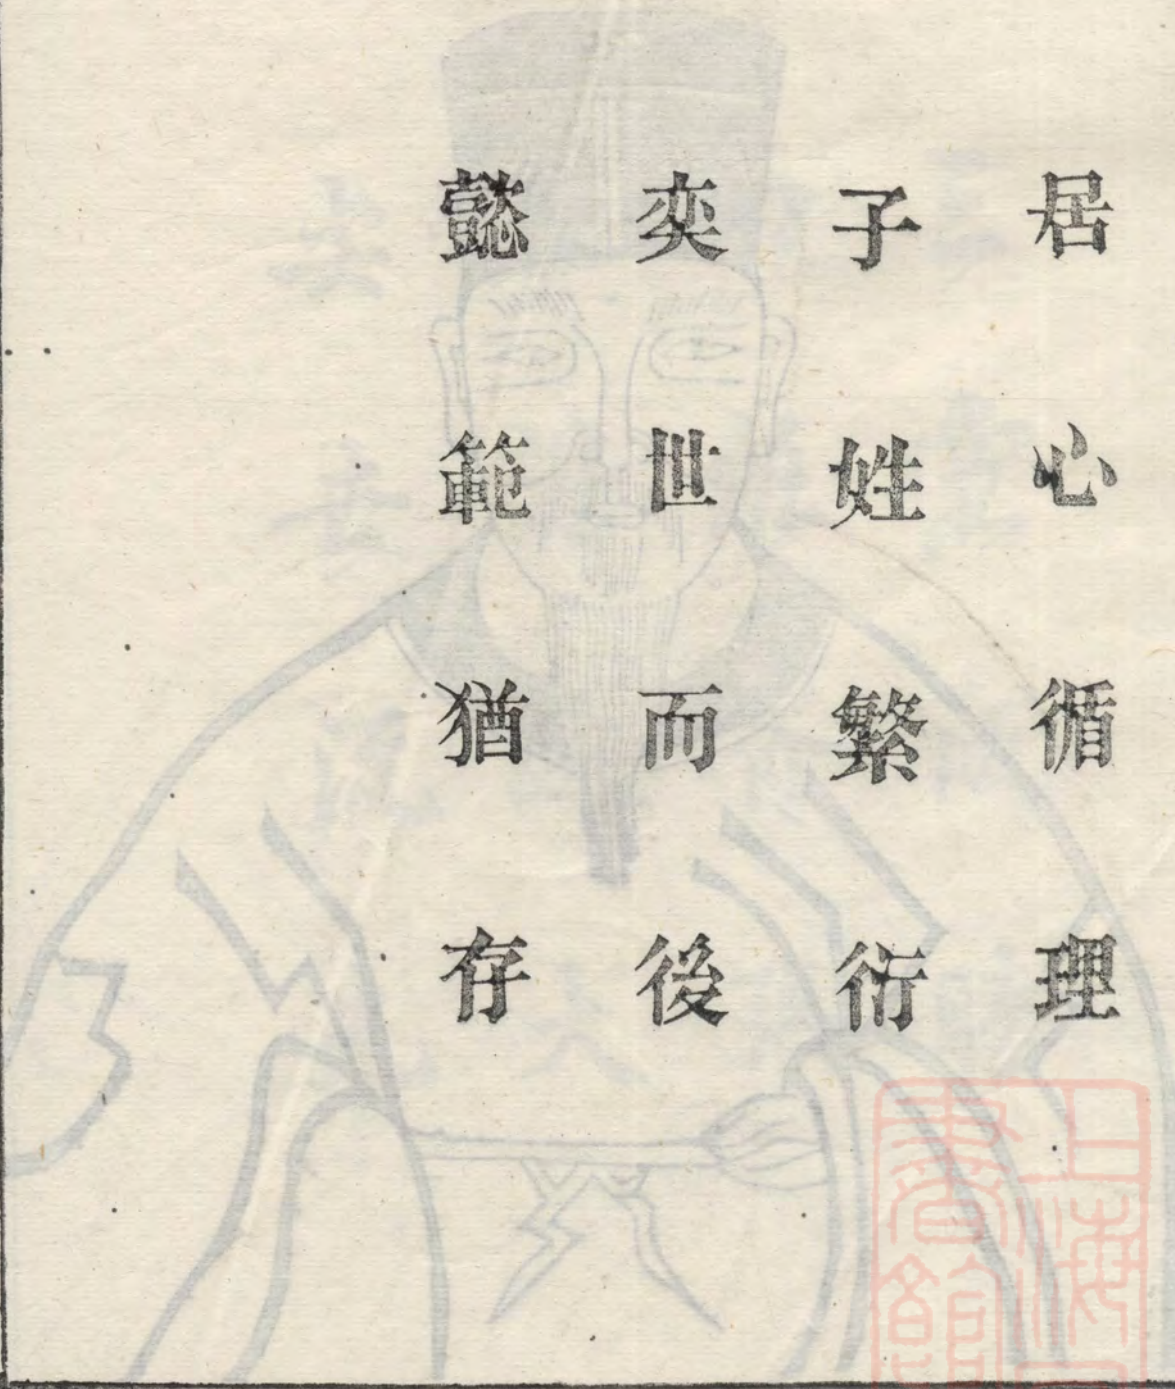 居心循理
子姓繁衍
奕世而後
懿範猶存
上海
書館